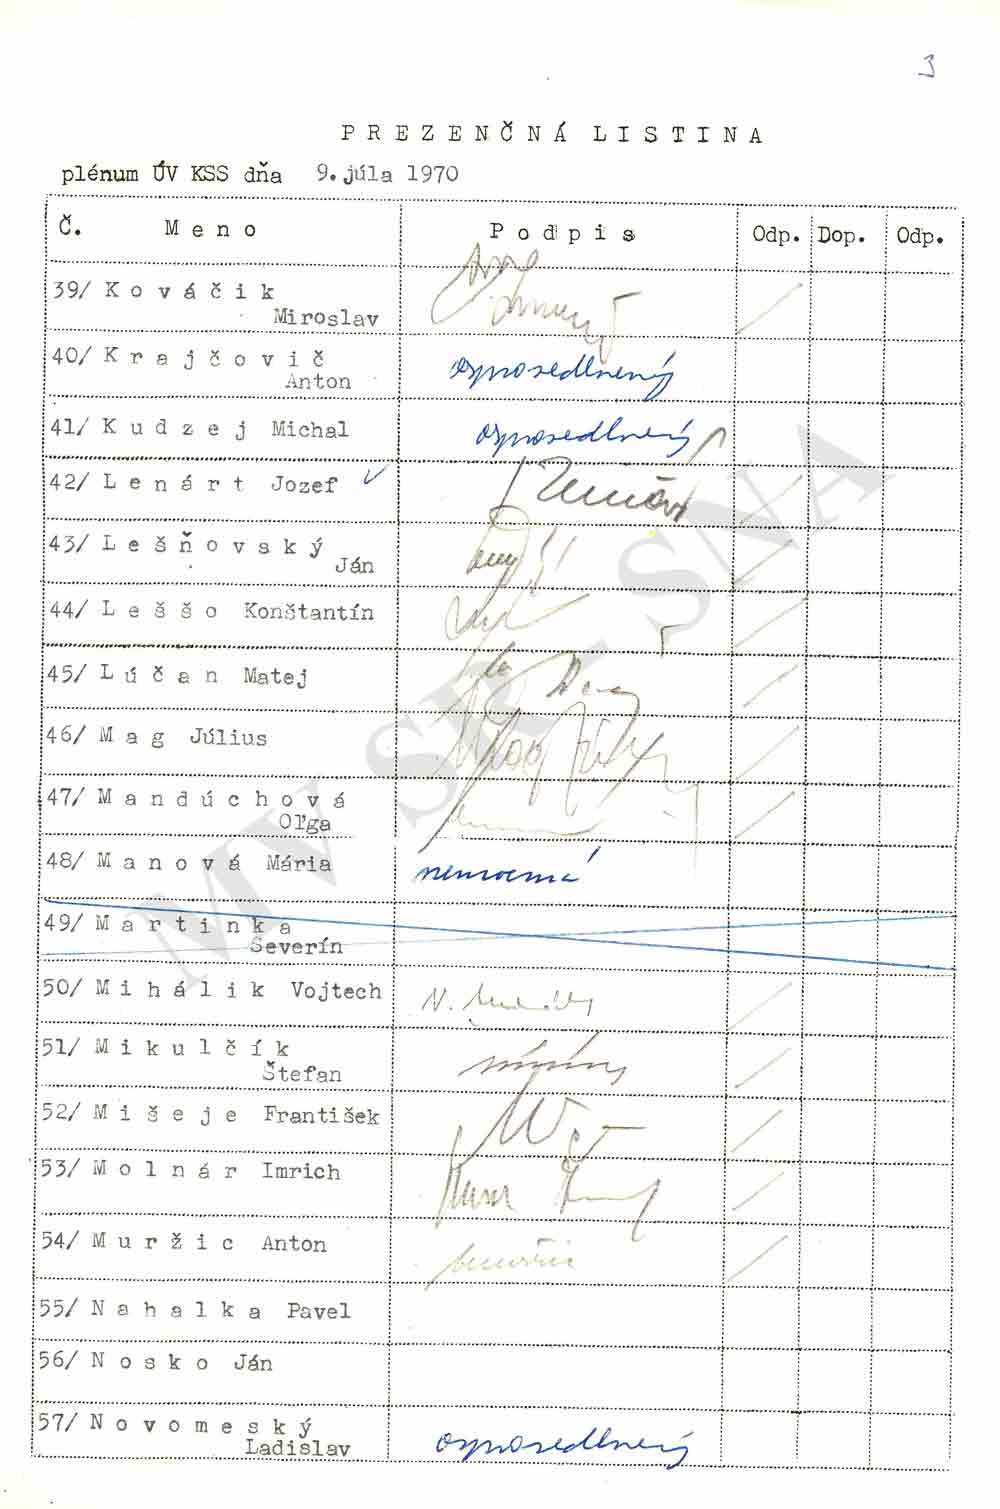 3
PREZENČNÁ LISTINA
plénum ÚV KSS dňa 9. júla 1970
Č. Meno Podpis Odp. Dop. Odp.
39/ Kováčik
Miroslav
40/ Krajčovič
Anton ospravedlnený
41/ Kudzej Michal ospravedlnený
42/ Lenárt Jozef
43/ Lešňovský
Ján
44/ Leššo Konštantín
45/ Lúčan Matej
46/ Mag Július
47/ Mandúchová
Oľga
48/ Manová Mária nemocná
49/ Martinka
Severín
50/ Mihálik Vojtech
51/ Mikulčík
Štefan
52/ Mišeje František
53/ Molnár Imrich
54/ Muržic Anton
55/ Nahalka Pavel
56/ Nosko Ján
57/ Novomeský
Ladislav ospravedlnený
MV SR - SNA